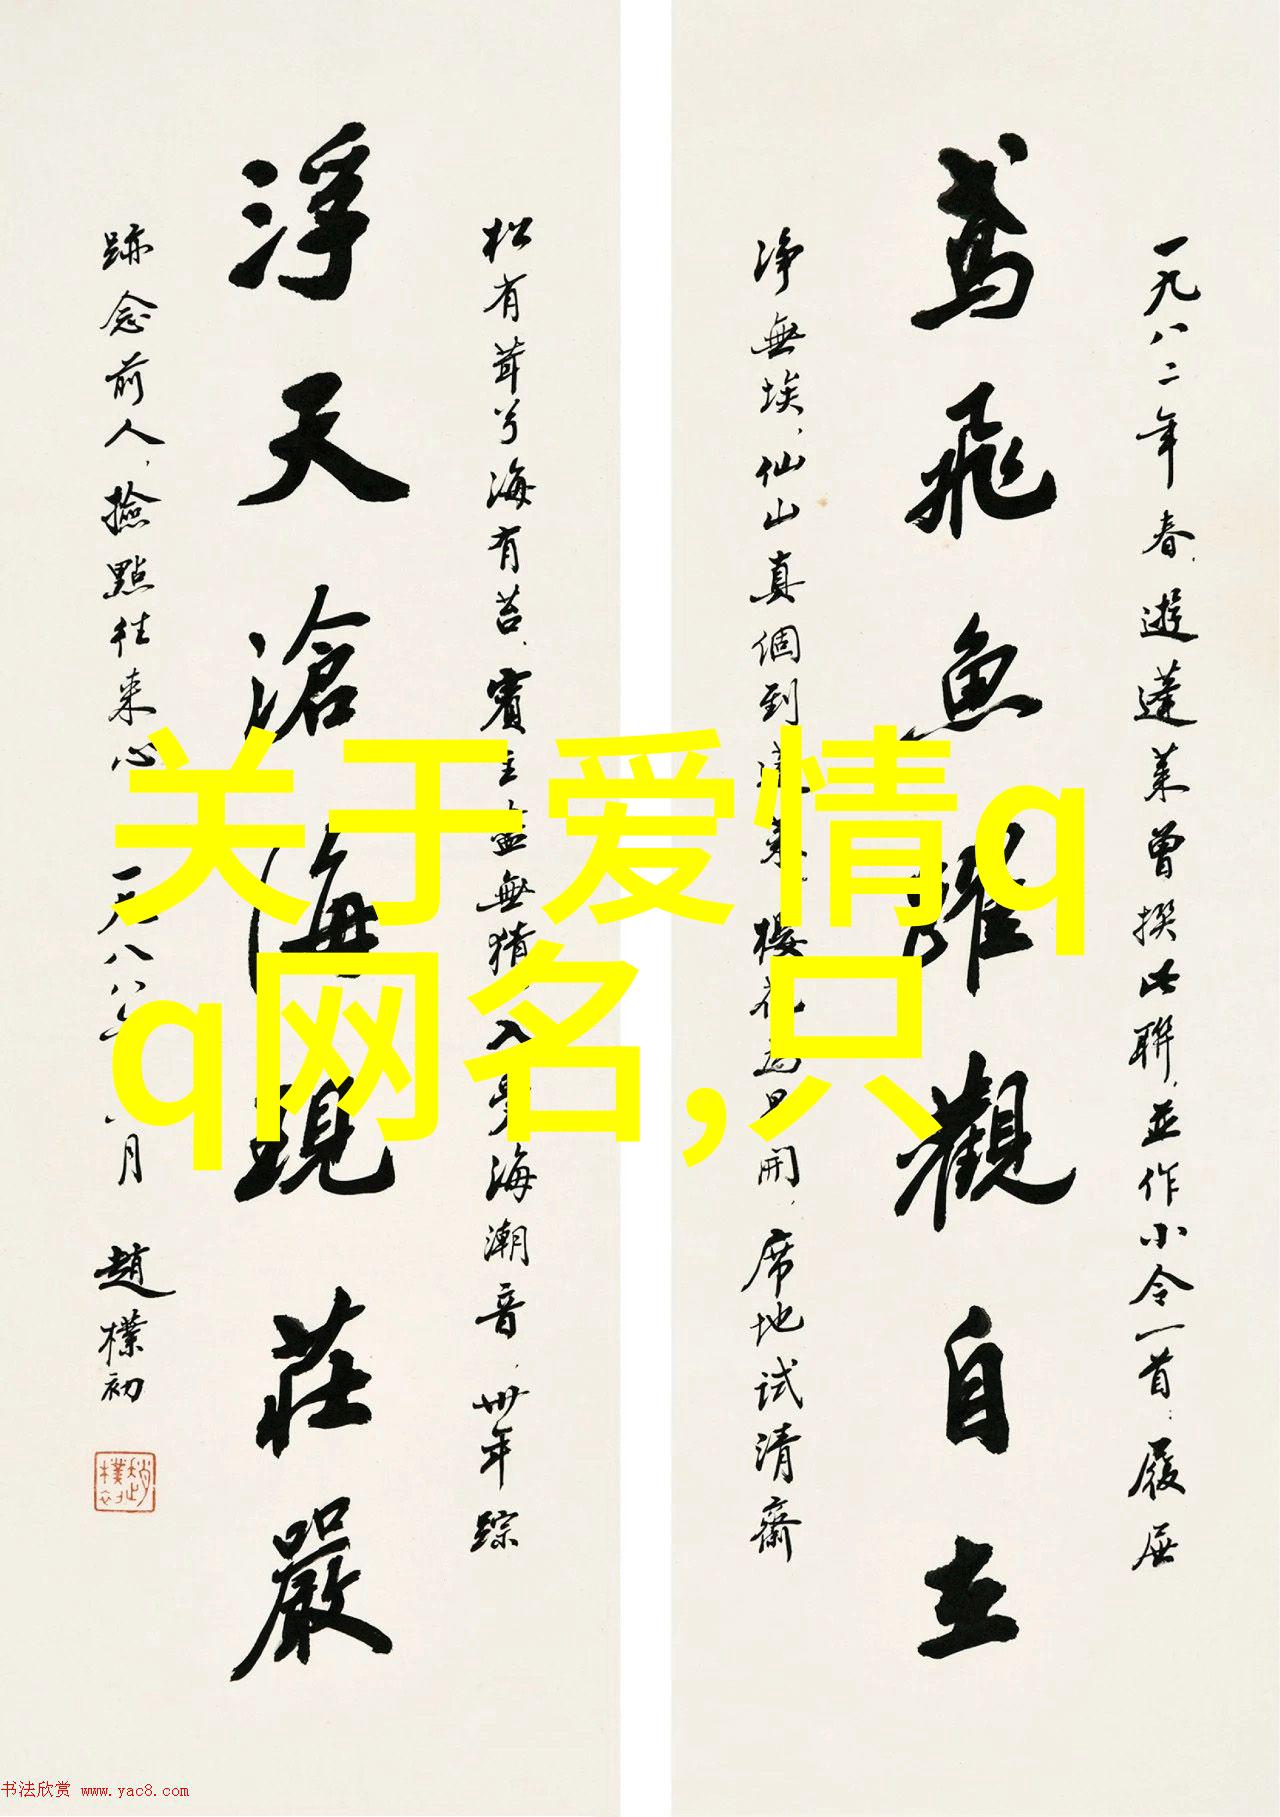 一九八二年春,遊蓬莱曾撰此聯,並作小令一首:履
鳶飛魚躍觀自在
净無埃,仙山真個到蓬莱,樓花為 開,席地試清齋
松有茸兮海有苔,賓主盡無猜,入 海潮音,卅年踪
浮天滄海現莊嚴
跡念前人,撿點往来心 一九八八年 月 趙樸初
关于爱情q
q网名,只
书法欣赏 www.yac8.com